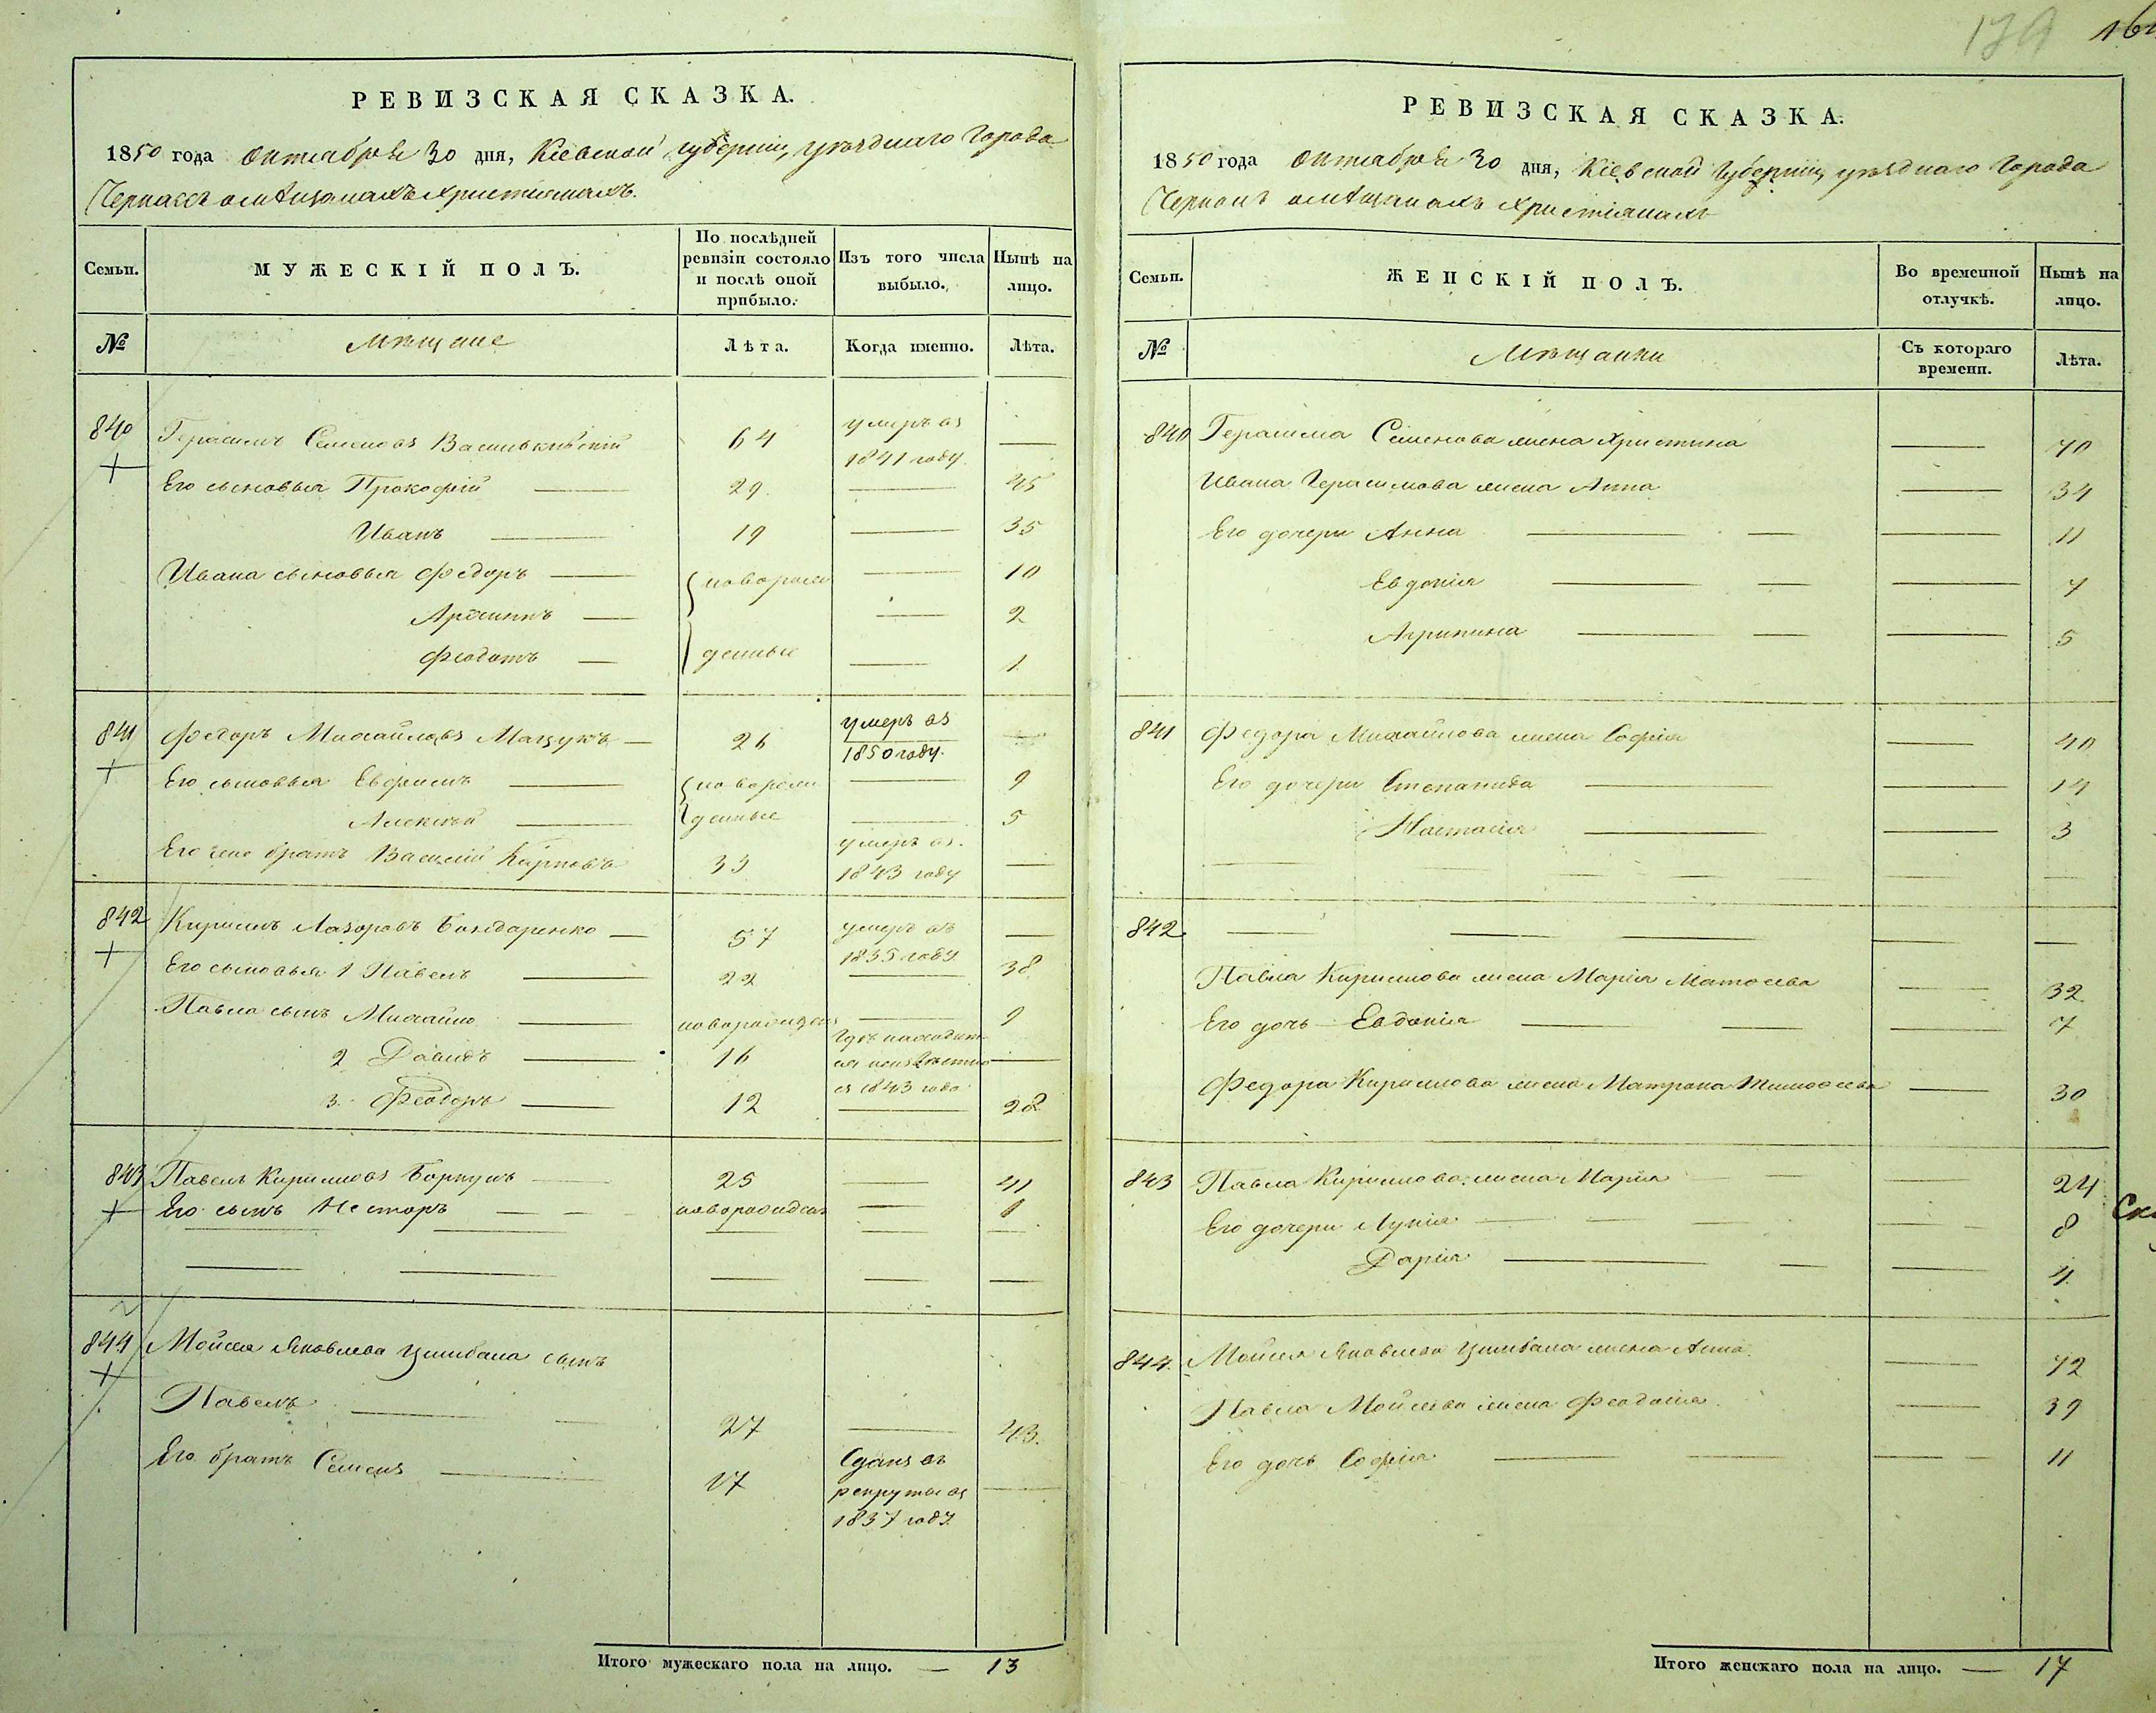 179
РЕВИЗСКАЯ СКАЗКА.
1850 года Октября 30 дня, Кіевской губерніи, уѣзднаго Города
Черкассъ о мѣщанахъ христіянахъ.
Семьи.
МУЖЕСКІЙ ПОЛЪ.
По послѣдней ревизіи состояло и послѣ оной прибыло.
Изъ того числа выбыло.
Нынѣ на лицо.
№
Мѣщане
Лѣта.
Когда именно.
Лѣта.
840 Герасимъ Семеновъ Васильківскій 64 умеръ въ 1841 году —
Его сыновья Прокофій — 29 — 45
Иванъ — 19 — 35
Ивана сыновья Федоръ — новорож — 10
— — 2
Феодотъ — денные — 1
841 Федоръ Михайловъ Мацукъ — 26 умеръ въ 1850 году. —
Его сыновья Евфимъ — новорож — 9
Алексѣй — денные — 5
Его же братъ Василій Карповъ 33 умеръ въ 1843 году —
842 Кирилъ Лазоровъ Бондаренко — 57 умеръ въ 1835 году —
Его сыновья 1 Павелъ — 22 — 38
Павла сынъ Михайло — новорожден — 9
2 Давидъ — 16 Гдѣ находится неизвѣстно съ 1843 года —
3. Феодоръ — 12 — 28
843 Павелъ Кириловъ — 25 — 41
Его сынъ Несторъ — новорожден — 1
844 Мойсея Яковлева Цимбала сынъ
Павелъ — 27 — 43.
Его братъ Семенъ — 17 Сданъ въ рекруты въ 1837 году —
Итого мужескаго пола на лицо. — 13
РЕВИЗСКАЯ СКАЗКА.
1850 года Октября 30 дня, Кіевской Губерніи, уѣзднаго Города
Черкасъ о мѣщанахъ христіянахъ
Семьи.
ЖЕНСКІЙ ПОЛЪ.
Во временной отлучкѣ.
Нынѣ на лицо.
№
Мѣщанки
Съ котораго времени.
Лѣта.
840 Герасима Семенова жена Христина — 70
Ивана Герасимова жена Анна — 34
Его дочери Анна — 11
Евдокія — 7
Агрипина — 5
841 Федора Михайлова жена Софія — 40
Его дочери Степанида — 14
Настасія — 3
842 —
Павла Кирилова жена Марія Матвеева — 32
Его дочь Евдокія — 7
Федора Кирилова жена Матрона Тимофеева — 30
843 Павла Кирилова жена Марія — 24
Его дочери Лукія — 8
Дарія — 4
844. Мойсея Яковлева Цимбала жена Анна — 72
Павла Мойсеева жена Феодосія — 39
Его дочь Софія — 11
Итого женскаго пола на лицо. — 17